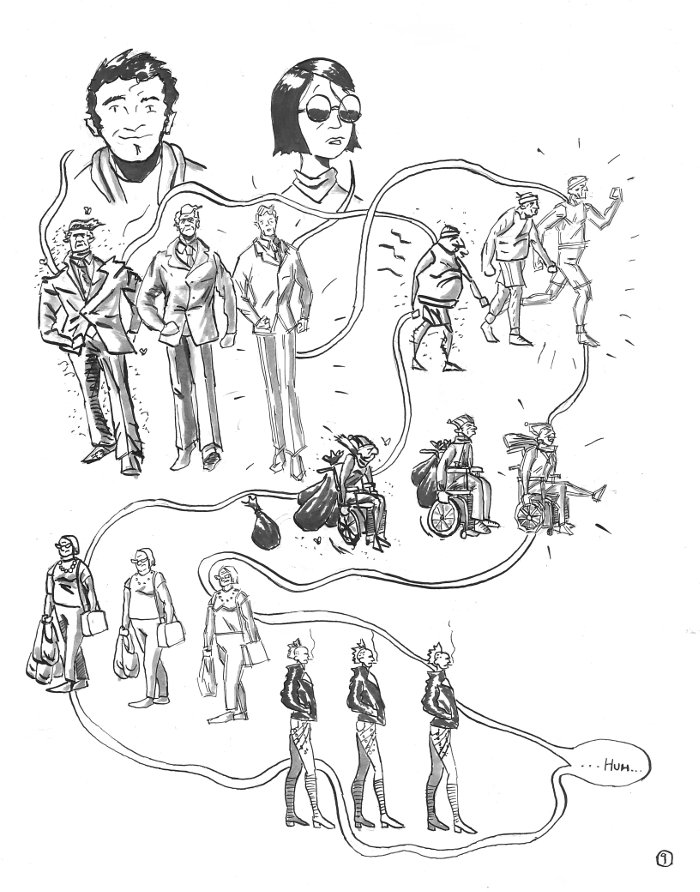 ...HUH...
9